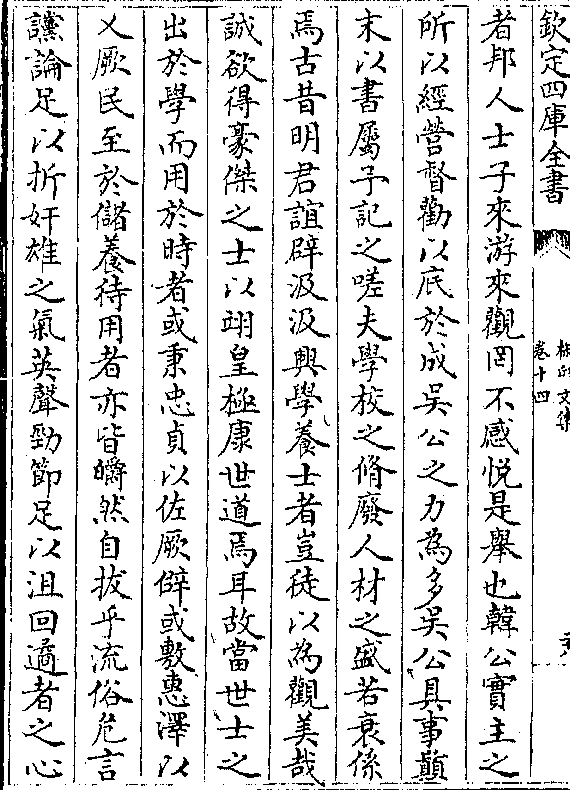 欽定四庫全書
卷十四
者邦人士子來游來觀罔不感悦是舉也韓公實主之
所以經營督勸以底於成吳公之力為多吳公具事顛
末以書屬予記之嗟夫學校之脩廢人材之盛若衰係
焉古昔明君誼辟汲汲興學養士者豈徒以為觀美哉
誠欲得豪傑之士以翊皇極康世道焉耳故當世士之
出於學而用於時者或秉忠貞以佐厥辟或敷惠澤以
乂厥民至於儲養待用者亦皆皭然自拔乎流俗危言
讜論足以折奸雄之氣英聲勁節足以沮回遹者之心